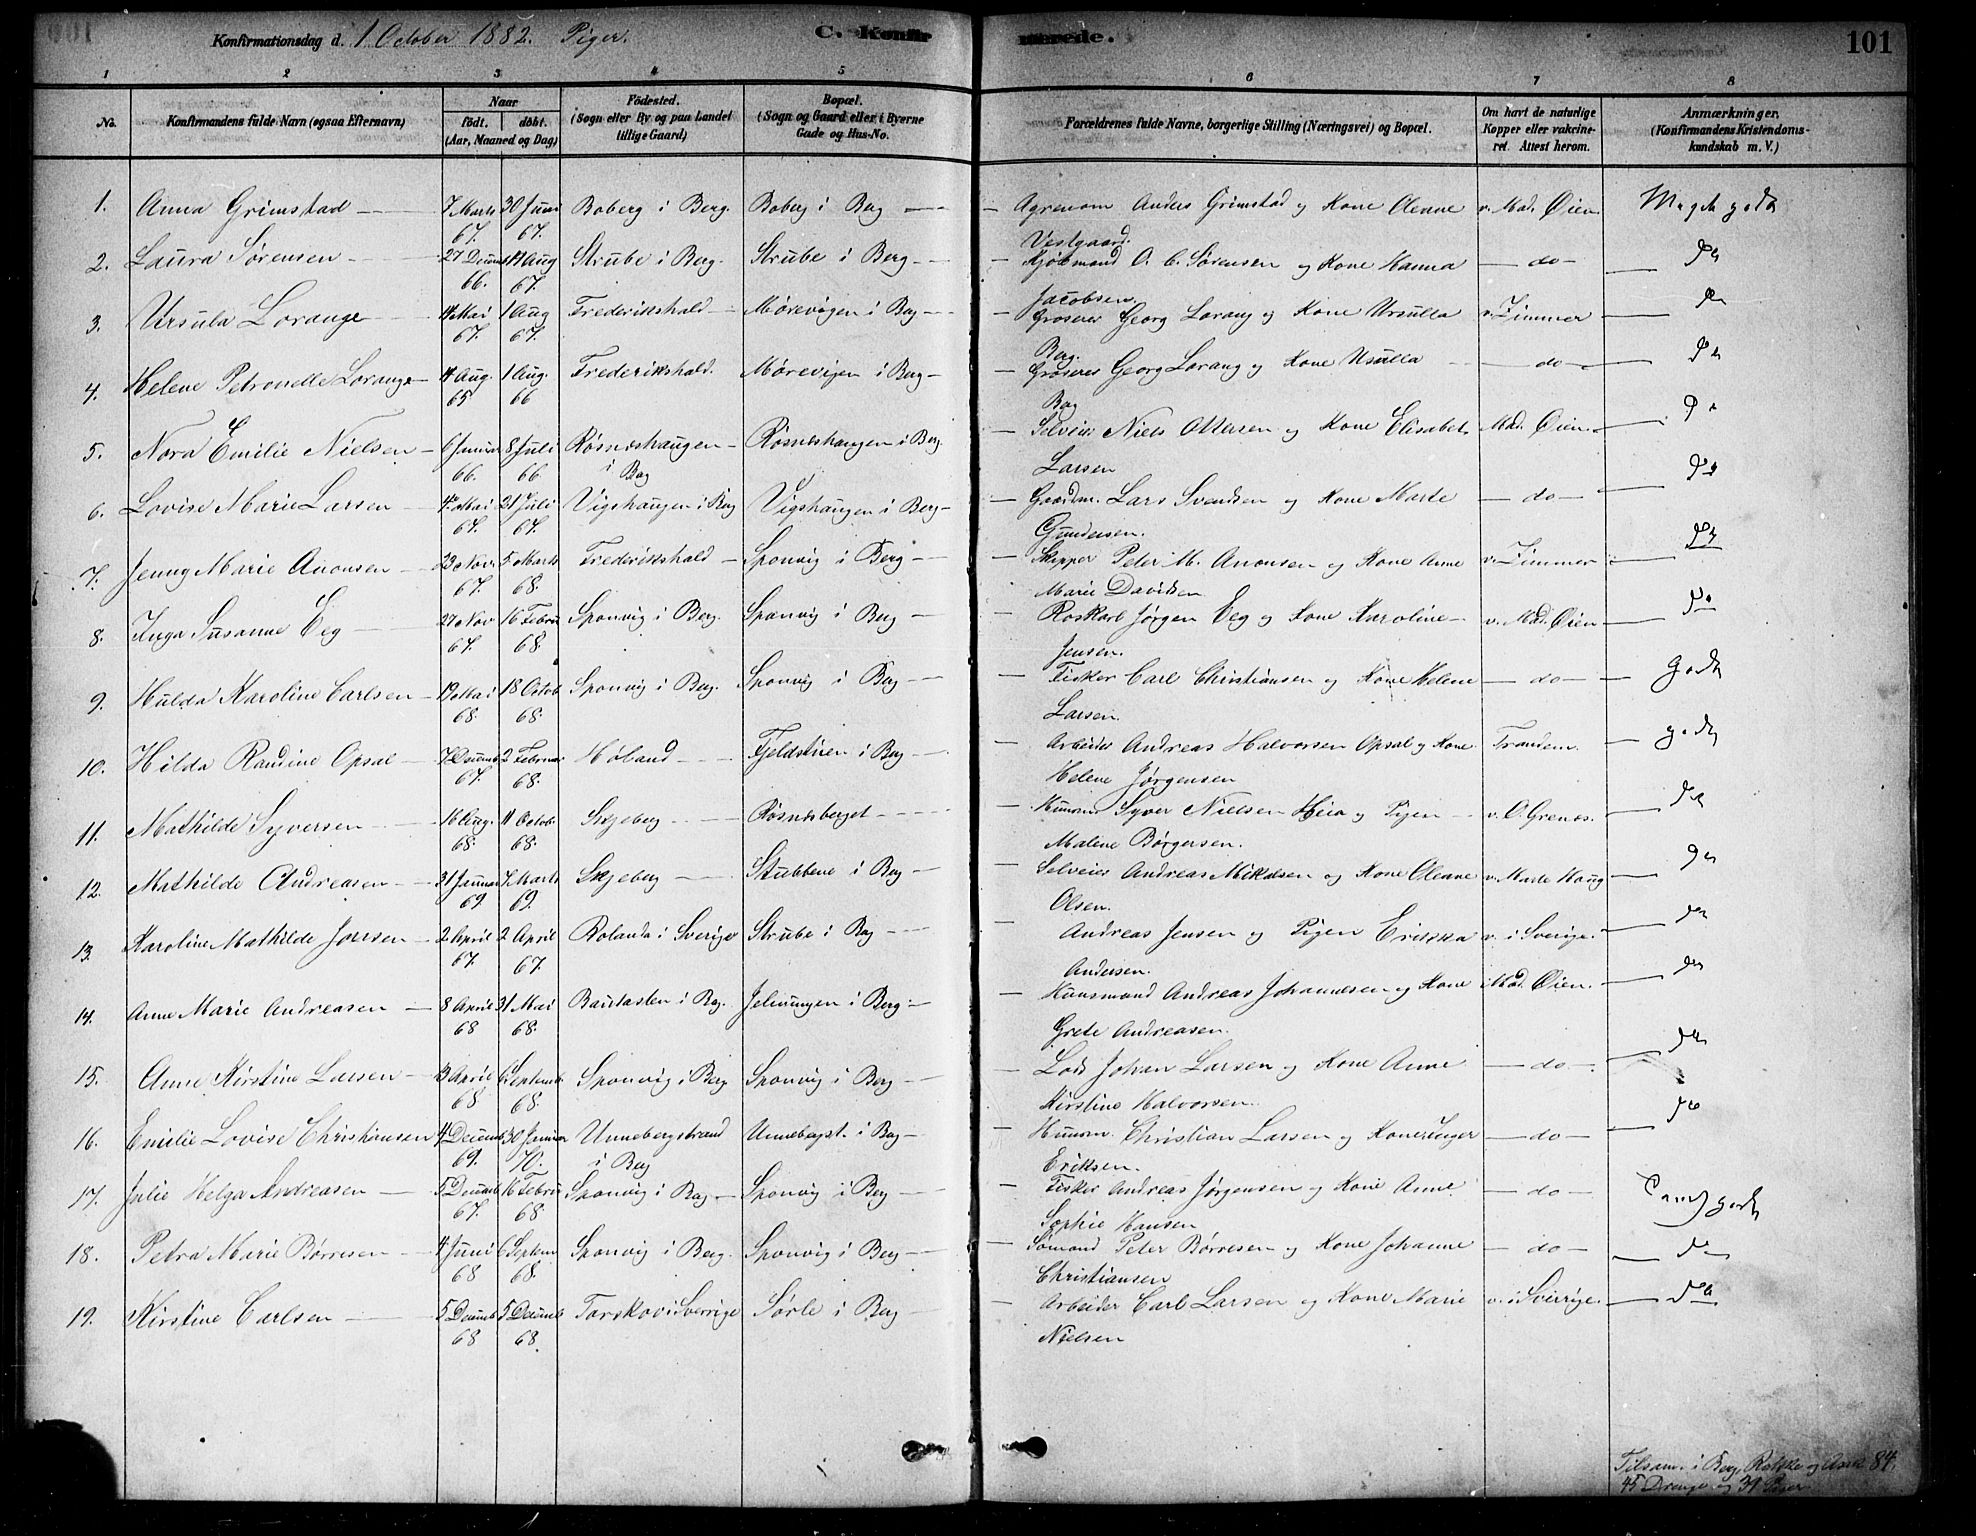 Konfirmationsdag d. 1 October 1882. Piger. C. Konfirmerede. 101
1 2 3 4 5 6 7 8
No. Konfirmandens fulde Navn (ogsaa Efternavn) Naar födt. döbt. (Aar, Maaned og Dag) Födested. (Sogn eller By og paa Landet tillige Gaard) Bopæl. (Sogn og Gaard eller i Byerne Gade og Hus-No. Forældrenes fulde Navne, borgerlige Stilling (Næringsvei) og Bopæl. Om havt de naturlige Kopper eller vakcineret. Attest herom. Anmærkninger. (Konfirmandens Kristendomskundskab m. V.)
1. Anna Grimstad 7 Marts 67. 30 Juni 67. Boberg i Berg. Boberg i Berg Agronom Anders Grimstad og Kone Oleane Vestgaard. v. Mad. Øien Meget godt
2. Laura Sørensen 27 Decemb 66. 11 Aug 67. Strube i Berg. Strube i Berg Kjøbmand O. C. Sørensen og Kone Hanna Jacobsen do do
3. Ursula Lorange 14 Mai 67. 1 Aug 67. Frederikshald Mørevigen i Berg Groserer Georg Lorang og Kone Ursulla Berg. v. Zimmer do
4. Helene Petronelle Lorange 4 Aug. 65 1 Aug. 66 Frederikshald. Mørevigen i Berg Groserer Georg Lorang og Kone Usulla Berg do do
5. Nora Emilie Nielsen 6 Januar 66. 8 Juli 66. Røsneshaugen i Berg Røsneshaugen i Berg Selveier Niels Ottersen og Kone Elisabet Larsen Mad. Øien do
6. Lovise Marie Larsen 4 Mai 67. 21 Juli 67. Vigshaugen i Berg Vigshaugen i Berg Gaardm. Lars Svendsen og Kone Marte Gundersen. do do
7. Jenny Marie Anonsen 23 Nov 67. 5 Marts 68. Frederikshald Sponvig i Berg Skipper Peter M. Anonsen og Kone Anne Marie Davidsen v. Zimmer do
8. Inga Susanne Eeg 27 Nov 67. 16 Febru 68. Sponvig i Berg. Sponvig i Berg Roskarl Jørgen Eeg og Kone Karoline Jensen. v. Mad. Øien do
9. Hulda Karoline Carlsen 19 Mai 68. 18 Octob 68. Sponvig i Berg. Sponvig i Berg Fisker Carl Christiansen og Kone Helene Larsen. do godt
10. Hilda Randine Opsal 7 Decemb 67. 2 Februar 68. Høland Fjeldstuen i Berg Arbeider Andreas Halvorsen Opsal og Kone Helene Jørgensen Trandem godt
11. Mathilde Syversen 16 Aug. 68. 11 Octob 68. Skjeberg Røsnesberget Husm Syver Nielsen Heia og Pigen Malene Børgersen. v. O. Grenes. do
12. Mathilde Andreasen 31 Januar 69 7 Marts 69. Skjeberg Stubbene i Berg Selveier Andreas Mikelsen og Kone Oleane Olsen. v. Marte Haug do
13. Karoline Mathilde Jensen 2 April 67. 2 April 67. Rolanda i Sverige Strube i Berg Andreas Jensen og Pigen Erikka Andersen. v. i Sverige. do
14. Anne Marie Andreasen 8 April 68 31 Mai 68. Bautasten i Berg. Jelinungen i Berg Husmand Andreas Johannesen og Kone Grete Andreasen. Mad. Øien. do
15. Anne Kirstine Larsen 3 April 68 6 Septemb. 68. Sponvig i Berg Sponvig i Berg Lods Johan Larsen og Kone Anne Kirstine Halvorsen. do do
16. Emilie Lovise Christiansen 4 Decemb 69. 30 Januar 70. Unnebergstrand i Berg Unnebergst. i Berg Husm. Christian Larsen og Kone Inger Eriksen. do do
17. Julie Helga Andreasen 5 Decemb 67. 16 Febru 68. Sponvig i Berg Sponvig i Berg Fisker Andreas Jørgensen og Kone Anne Sophie Hansen do godt
18. Petra Marie Børresen 4 Juni 68 6 Septem 68. Sponvig i Berg. Sponvig i Berg Sømand Peter Børresen og Kone Johanne Christiansen do do
19. Kirstine Carlsen 5 Decemb 68 5 Decemb 68. Torskov i Sverrige Sørle i Berg Arbeider Carl Larsen og Kone Marie Nielsen v. i Sverrige. do
Tilsam. i Berg, Rokke og Asak 84.
45 Drenge og 39 Piger